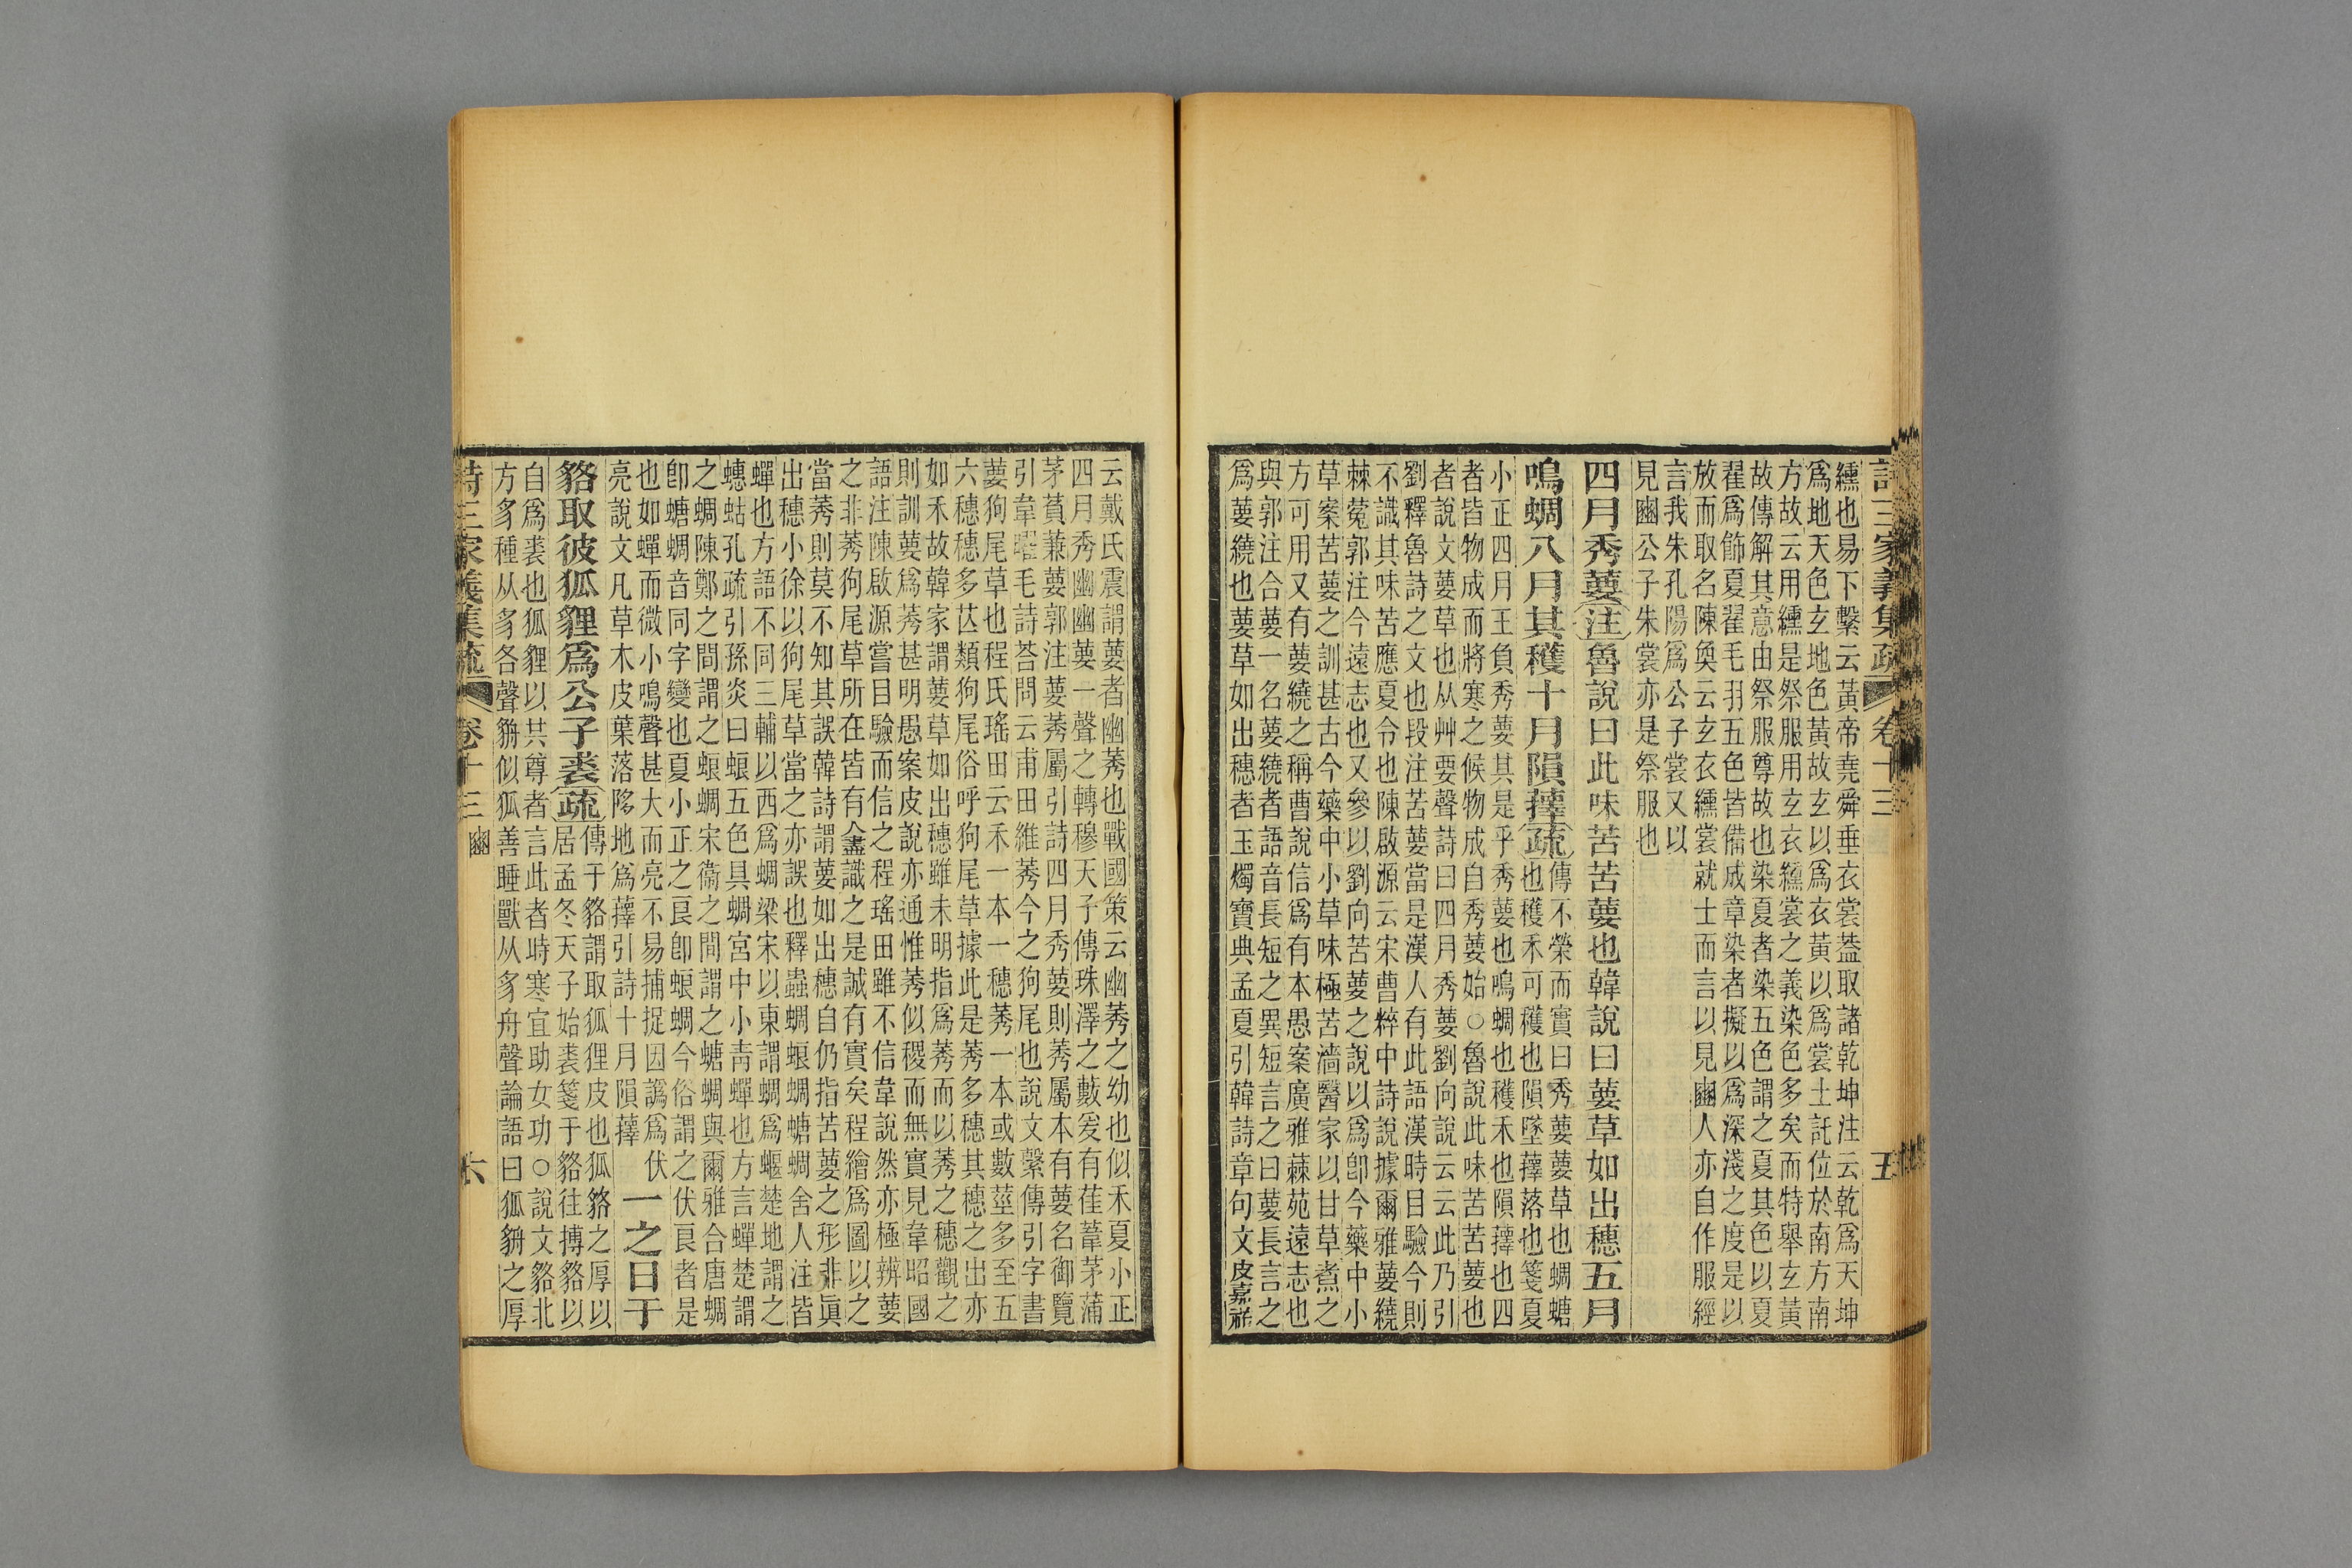 詩三家義集疏 卷十三 五
纁也易下繫云黃帝堯舜垂衣裳葢取諸乾坤注云乾爲天坤
爲地天色玄地色黃故玄以爲衣黃以爲裳土託位於南方南
方故云用纁是祭服用玄衣纁裳之義染色多矣而特舉玄黃
故傳解其意由祭服尊故也染夏者染五色謂之夏其色以夏
翟爲飾夏翟毛羽五色皆備成章染者擬以爲深淺之度是以
放而取名陳奐云玄衣纁裳就士而言以見豳人亦自作服經
言我朱孔陽爲公子裳又以
見豳公子朱裳亦是祭服也
四月秀葽注魯說曰此味苦苦葽也韓說曰葽草如出穗五月
鳴蜩八月其穫十月隕蘀疏傳不榮而實曰秀葽葽草也蜩螗
也穫禾可穫也隕墜蘀落也箋夏
小正四月王負秀葽其是乎秀葽也鳴蜩也穫禾也隕蘀也四
者皆物成而將寒之候物成自秀葽始○魯說此味苦苦葽也
者說文葽草也从艸要聲詩曰四月秀葽劉向說云云此乃引
劉釋魯詩之文也段注苦葽當是漢人有此語漢時目驗今則
不識其味苦應夏令也陳啟源云宋曹粹中詩說據爾雅葽繞
棘菟郭注今遠志也又參以劉向苦葽之說以爲卽今藥中小
草案苦葽之訓甚古今藥中小草味極苦澀醫家以甘草煮之
方可用又有葽繞之稱曹說信爲有本愚案廣雅蕀苑遠志也
與郭注合葽一名葽繞者語音長短之異短言之曰葽長言之
爲葽繞也葽草如出穗者玉燭寶典孟夏引韓詩章句文皮嘉祐
云戴氏震謂葽者幽莠也戰國策云幽莠之幼也似禾夏小正
四月秀幽幽葽一聲之轉穆天子傳珠澤之藪爰有萑葦茅蒲
茅萯蒹葽郭注葽莠屬引詩四月秀葽則莠屬本有葽名御覽
引韋曜毛詩荅問云甫田維莠今之狗尾也說文繫傳引字書
葽狗尾草也程氏瑤田云禾一本一穗莠一本或數莖多至五
六穗穗多芒類狗尾俗呼狗尾草據此是莠多穗其穗之出亦
如禾故韓家謂葽草如出穗雖未明指爲莠而以莠之穗觀之
則訓葽爲莠甚明愚案皮說亦通惟莠似稷而無實見韋昭國
語注陳啟源嘗目驗而信之程瑤田雖不信韋說然亦極辨葽
之非莠狗尾草所在皆有人盡識之是誠有實矣程繪爲圖以之
當莠則莫不知其誤韓詩謂葽如出穗自仍指苦葽之形非眞
出穗小徐以狗尾草當之亦誤也釋蟲蜩蜋蜩螗蜩舍人注皆
蟬也方語不同三輔以西爲蜩梁宋以東謂蜩爲蝘楚地謂之
蟪蛄孔疏引孫炎曰蜋五色具蜩宮中小靑蟬也方言蟬楚謂
之蜩陳鄭之間謂之蜋蜩宋衞之間謂之螗蜩與爾雅合唐蜩
卽螗蜩音同字變也夏小正之良卽蜋蜩今俗謂之伏良者是
也如蟬而微小鳴聲甚大而亮不易捕捉因譌爲伏
亮說文凡草木皮葉落陊地爲蘀引詩十月隕蘀 一之日于
貉取彼狐貍爲公子裘疏傳于貉謂取狐狸皮也狐貉之厚以
居孟冬天子始裘箋于貉往搏貉以
自爲裘也狐貍以共尊者言此者時寒宜助女功○說文貉北
方豸種从豸各聲貈似狐善睡獸从豸舟聲論語曰狐貈之厚
詩三家義集疏 卷十三 豳 六